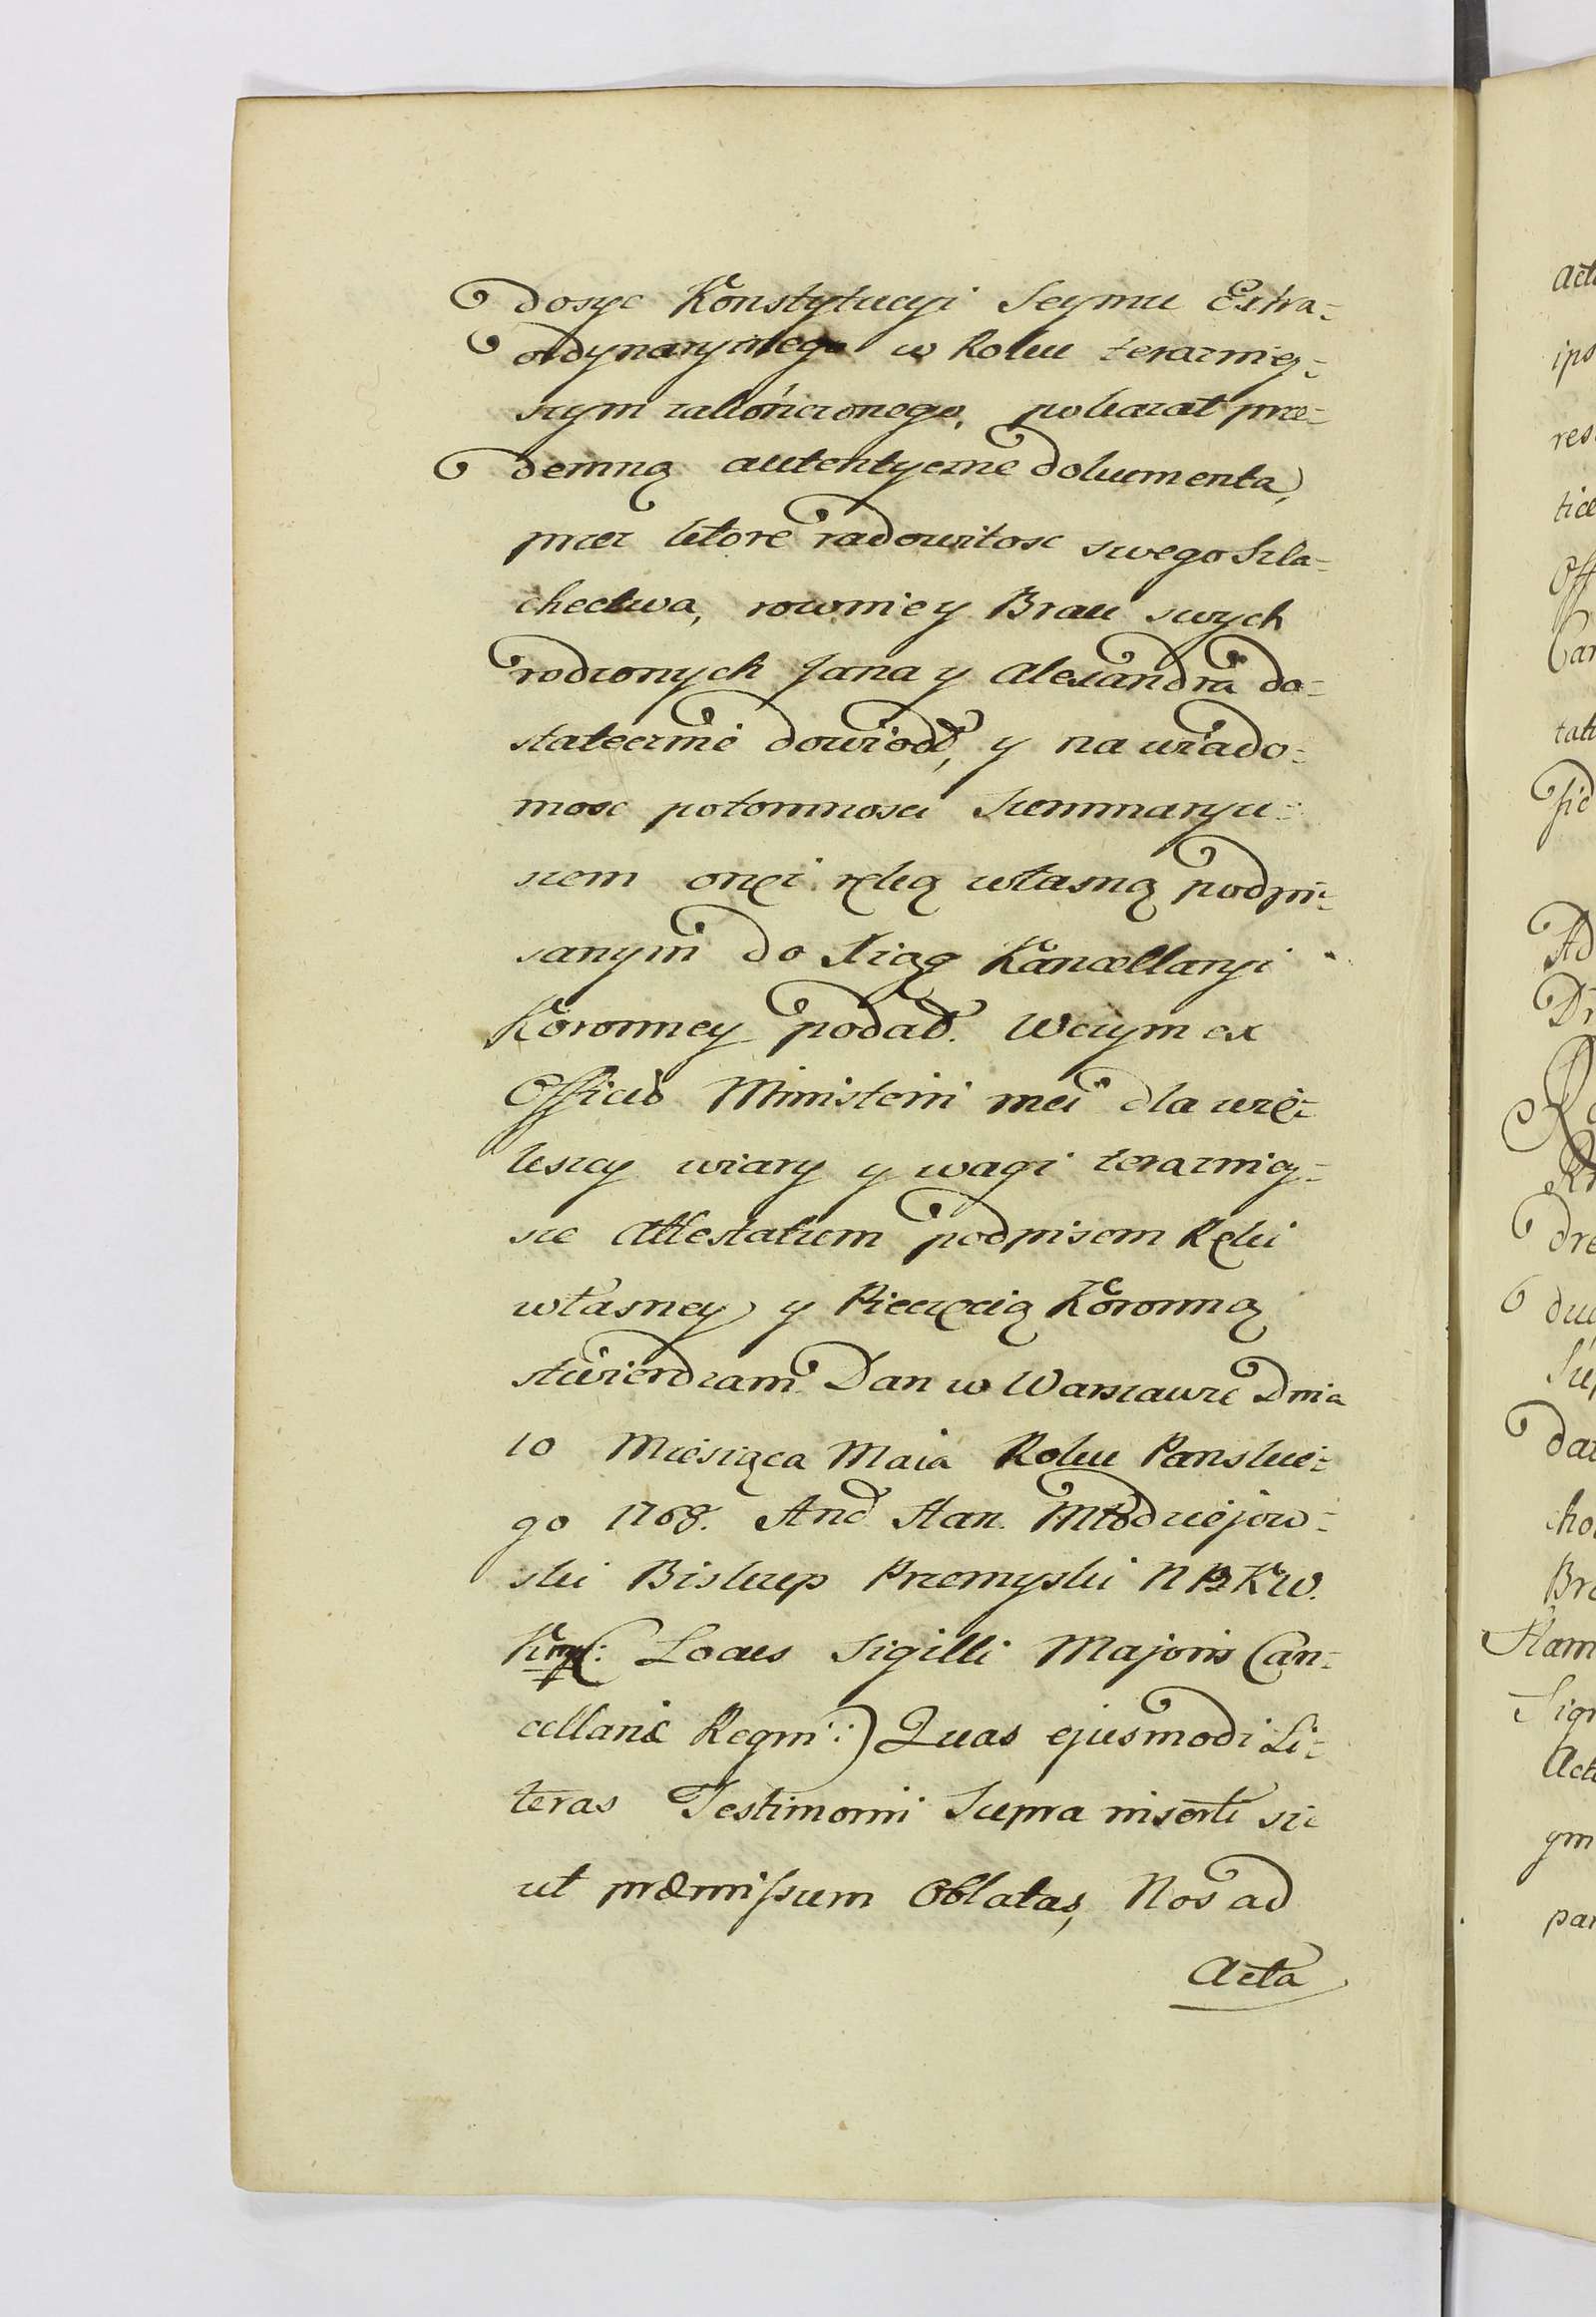 dosyc Konstytucyi Seymu Extra=
ordynaryinego w Roku teraznieÿ=
szym zakończonego, pokazał prze=
demną autentyczne dokumenta,
przez ktore radowitosc swego Szla=
chectwa, rowniey Braci swych
rodzonych Jana y Alexandra do=
statecznie dowiodł, y na wiado=
mosc potomnosci Summaryu=
szem onęż ręką własną podpi=
sanym do Xiąg Kancellaryi
Koronney podał. W czym ex
Officio Ministerii mei dla wię=
kszey wiary y wagi teraznieÿ=
sze Attestatum podpisem Ręki
własney y Pieczęcią Koronną
stwierdzam. Dan w Warszawie Dnia
10 Miesiąca Maia Roku Panskie=
go 1768. And Stan. Młodziejow=
ski Biskup Przemyski N P K W.
Locus Sigilli Majoris Can=
cellariæ Regni:) Quas ejusmodi Li=
teras Testimonii Supra inserti sic
ut præmissum Oblatas, Nos ad
Acta
Acta
ips
res
tice
Off
Can
tati
fid
Ad
Dr
dre
duc
Sup
dat
cho
Bra
Stam
Sign
Act
gm
par